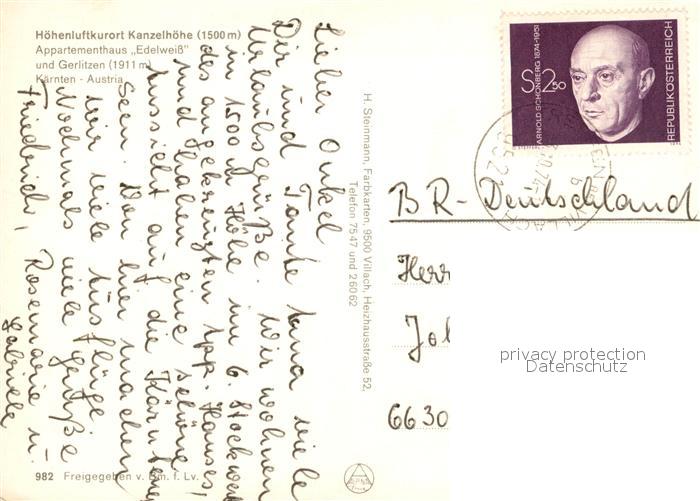 Höhenluftkurort Kanzelhöhe (1500 m)
Appartementhaus „Edelweiß"
und Gerlitzen (1911 m)
Kärnten - Austria
Lieber Onkel
Dir und Tante Anna viele
Urlaubsgrüße. Wir wohnen
in 1500 m Höhe im 6. Stockwerk
des angekreuzten App. Hauses,
und haben eine schöne
Aussicht auf die Kärntner
Seen. Von hier machen
wir viele Ausflüge.
Nochmals viele Grüße
Friedrich, Rosemarie u.
Gabriele
982 Freigegeben v. Bm. f. Lv.
H. Steinmann, Farbkarten, 9500 Villach, Heizhausstraße 52,
Telefon 75 47 und 2 60 62
S 2.50
ARNOLD SCHÖNBERG 1874-1951
REPUBLIK ÖSTERREICH
BR-Deutschland
Herr
Joh
6630
privacy protection
Datenschutz